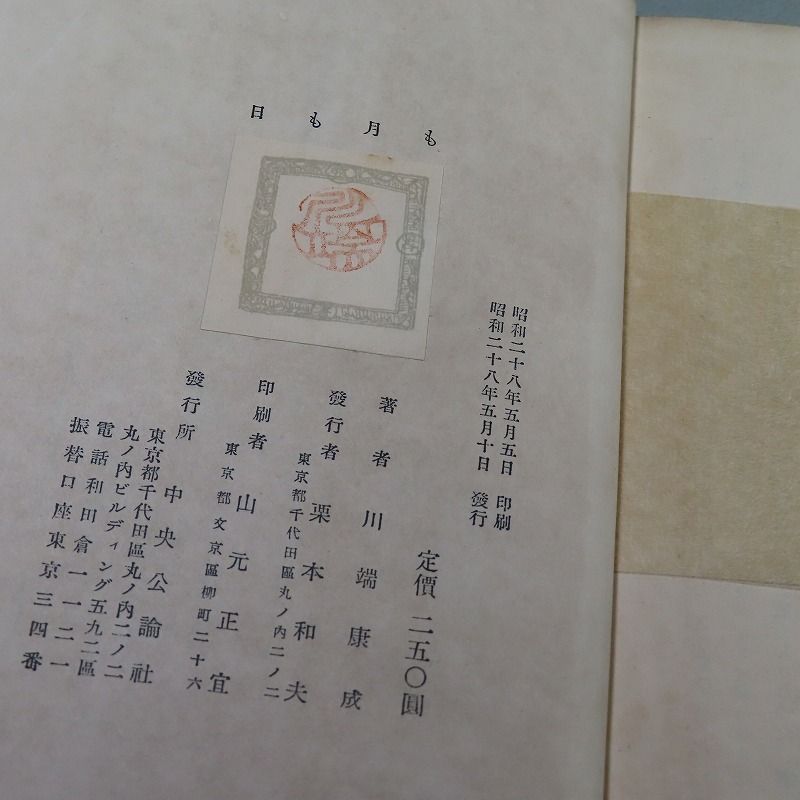 日も月も
川端
昭和二十八年五月五日 印刷
昭和二十八年五月十日 發行
定價 二五〇圓
著者 川端康成
發行者 栗本和夫
東京都千代田區丸ノ內二ノ二
印刷者 山元正宜
東京都文京區柳町二十六
發行所 中央公論社
東京都千代田區丸ノ內二ノ二
丸ノ內ビルディング五九二區
電話和田倉一一二一
振替口座東京三四番